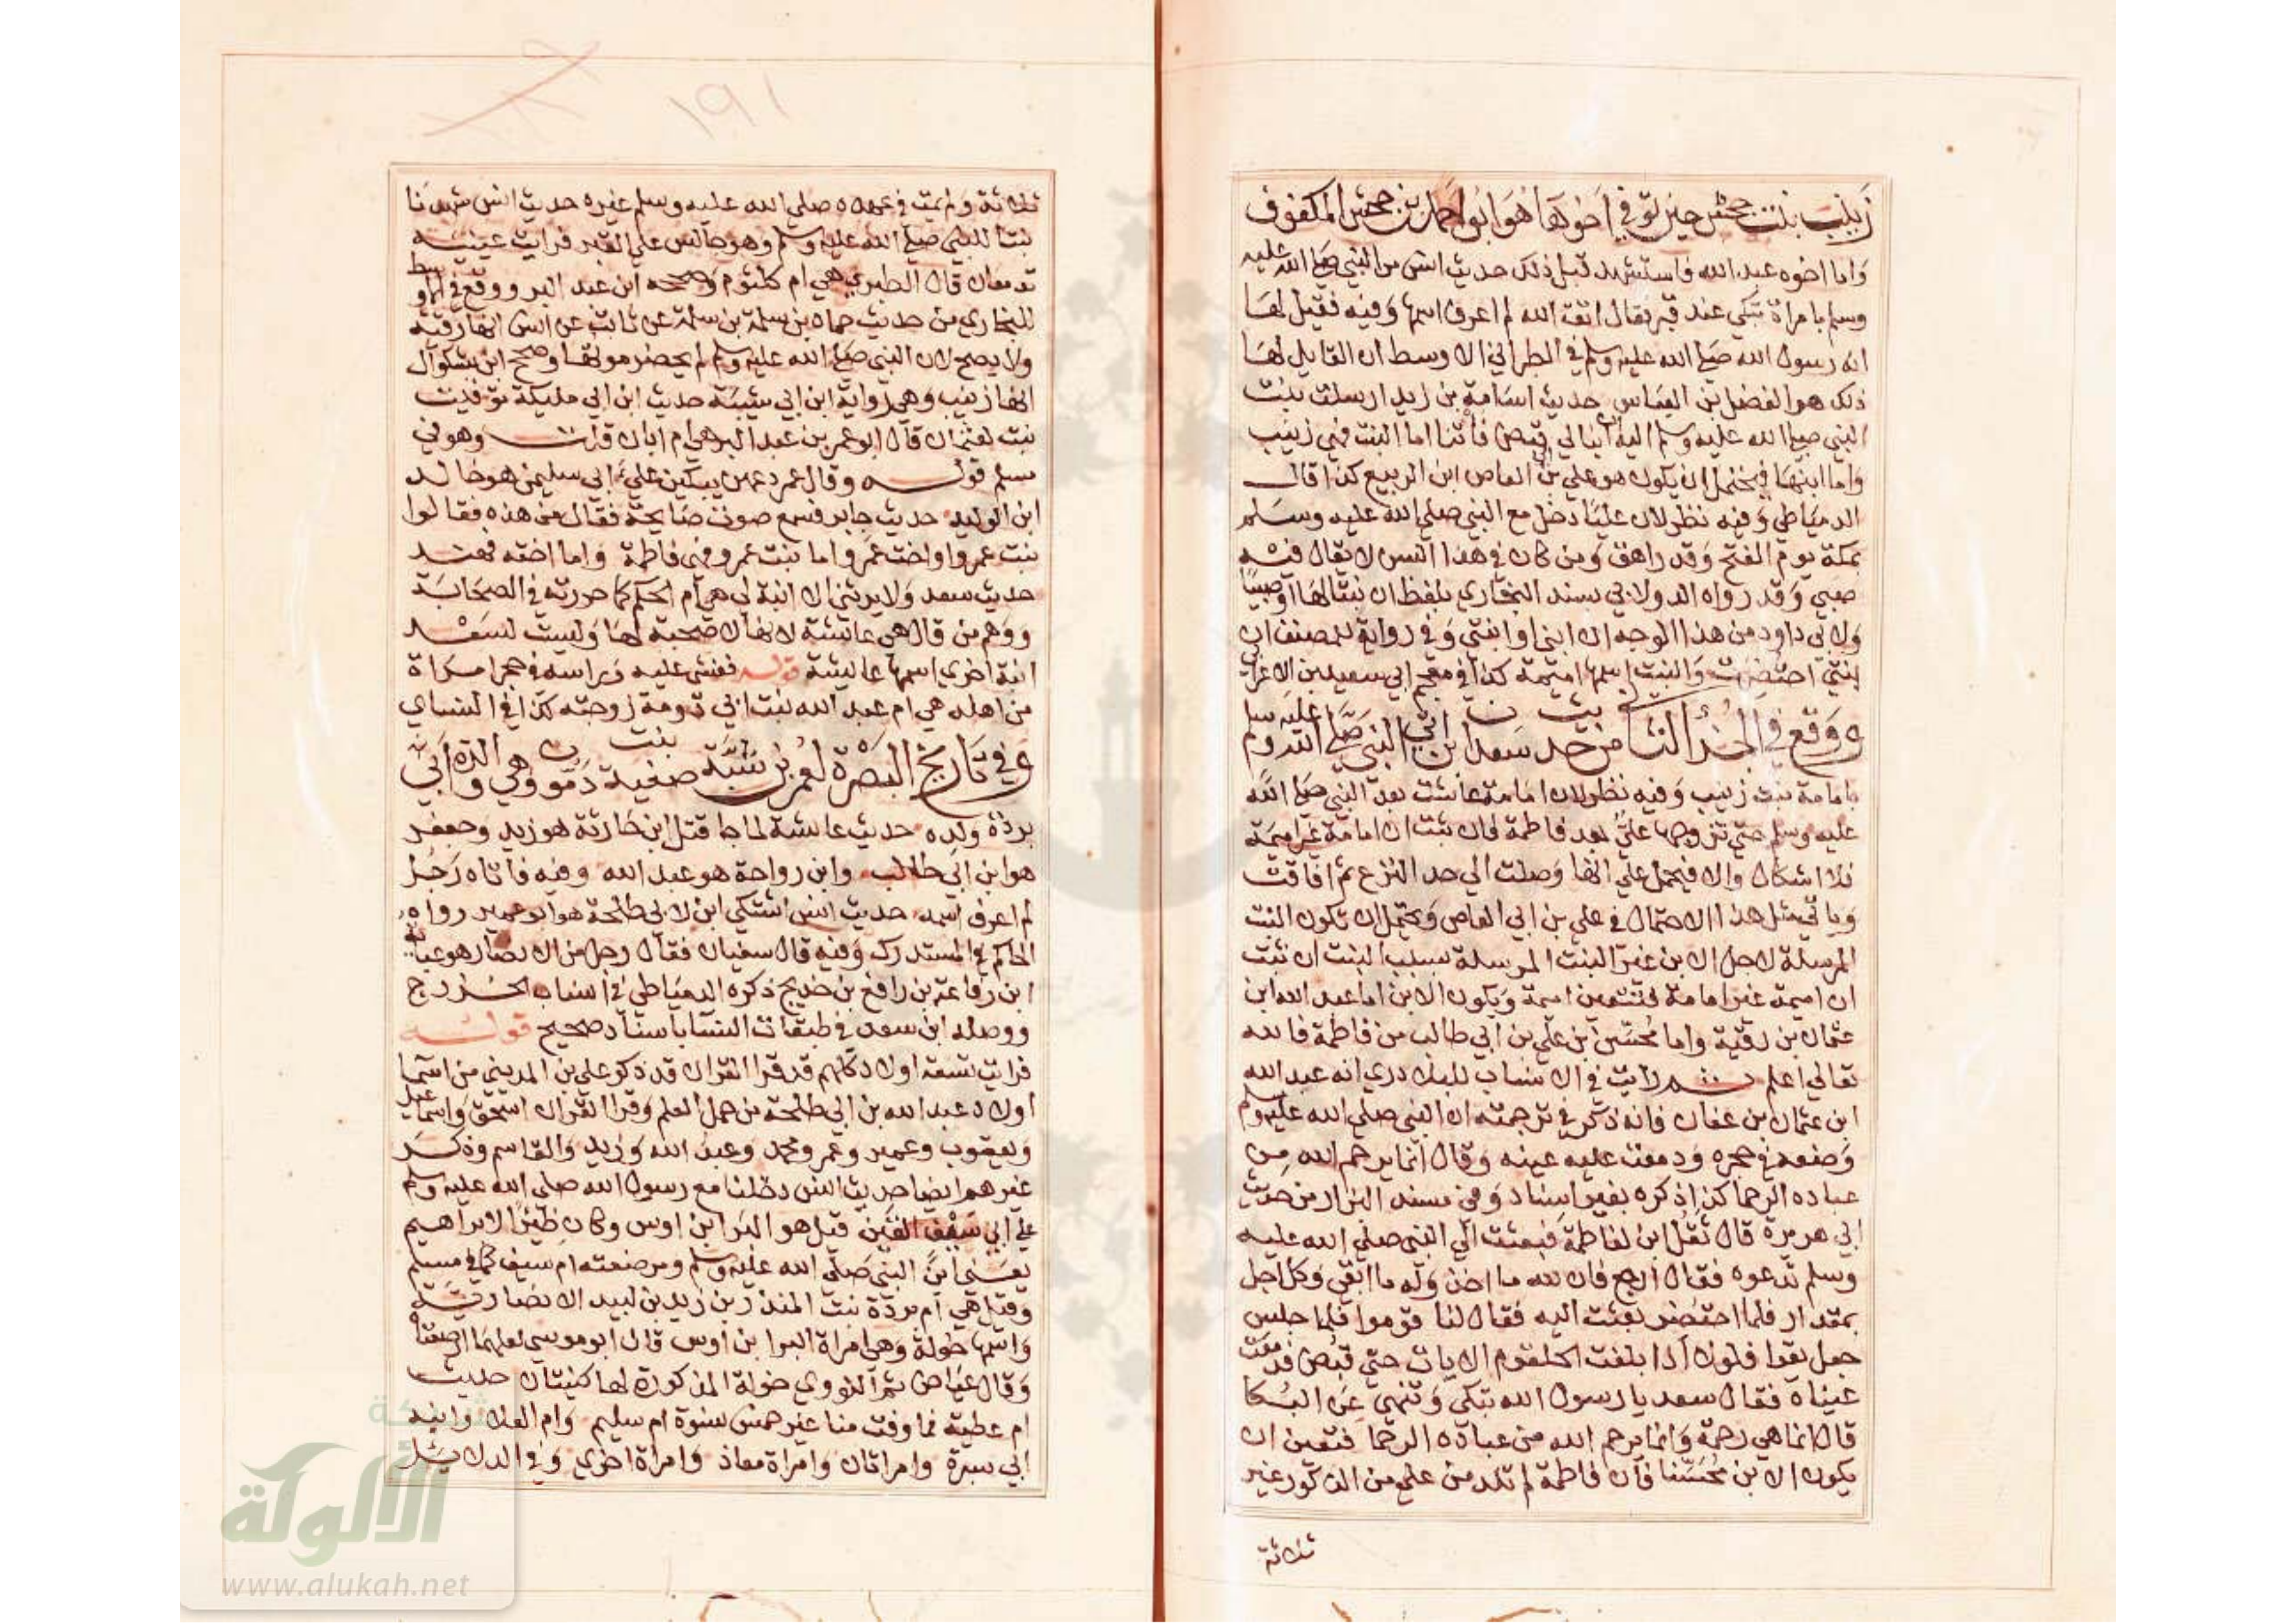 زينب بنت جحش حين توفي اخوها هو ابو احمد بن جحش المكفوف
واما اخوه عبد الله فاستشهد قبل ذلك حديث انس مر النبي صلى الله عليه
وسلم بامراة تبكي عند قبر فقال اتقي الله لم اعرف اسمها وفيه فقيل لها
انه رسول الله صلى الله عليه وسلم في الطبراني الاوسط ان القايل لها
ذلك هو الفضل بن العباس حديث اسامة بن زيد ارسلت بنت
النبي صلى الله عليه وسلم اليه ان ابنا لي قبض فأتنا اما البنت فهي زينب
واما ابنها فيحتمل ان يكون هو علي بن ابي العاص ابن الربيع كذا قال
الدمياطي وفيه نظر لان عليا دخل مع النبي صلى الله عليه وسلم
بمكة يوم الفتح وقد راهق ومن كان في هذا السن لا يقال فيه
صبي وقد رواه الدولابي بسند البخاري بلفظ ان بنتا لها او صبيا
ولابي داود من هذا الوجه ان ابني او ابنتي وفي رواية للمصنف ان
ابنتي احتضرت والبنت اسمها اميمة كذا في معجم ابي سعيد بن الاعرابي
ووقع في الجزء الثاني من حديث سعدان بن ان النبي صلى الله عليه وسلم
بامامة بنت زينب وفيه نظر لان امامة عاشت بعد النبي صلى الله
عليه وسلم حتى تزوجها علي بعد فاطمة فان ثبت ان امامة غير اميمة
فلا اشكال والا فيحمل علي انها وصلت الي حد النزع ثم افاقت
وياتي مثل هذا الاحتمال في علي بن ابي العاص ويحتمل ان تكون البنت
المرسلة لاجل الابن غير البنت المرسلة بسبب البنت ان ثبت
ان اميمة غير امامة فتتعين اميمة ويكون الابن اما عبد الله ابن
عثمان بن رقية واما محسن ابن علي بن ابي طالب من فاطمة فالله
تعالي اعلم ثم رايت في الانساب للبلاذري انه عبد الله
ابن عثمان بن عفان فانه ذكر في ترجمته ان النبي صلى الله عليه وسلم
وضعه في حجره ودمعت عليه عينه وقال انما يرحم الله من
عباده الرحما كذا ذكره بغير اسناد وفي مسند البزار من حديث
ابي هريرة قال ثقل ابن لفاطمة فبعثت الي النبي صلى الله عليه
وسلم تدعوه فقال ارجع فان لله ما اخذ وله ما ابقي وكل اجل
بمقدار فلما احتضر بعثت اليه فقال لنا قوموا فلما جلس
جعل يقرا فلولا اذا بلغت الحلقوم الايات حتي قبض فدمعت
عيناه فقال سعد يا رسول الله تبكي وتنهي عن البكا
قال انما هي رحمة وانما يرحم الله من عباده الرحما فتعين ان
يكون الابن محسنا فان فاطمة لم تلد من علي من الذكور غير
ثلاثة
١٩١
ثلاثة ولم يمت في عهده صلى الله عليه وسلم غيره حديث انس شهدنا
بنتا للنبي صلى الله عليه وسلم وهو جالس علي القبر فرايت عينيه
تدمعان قال الطبري هي ام كلثوم وصححه ابن عبد البر ووقع في الاوسط
للبخاري من حديث حماد بن سلمة بن سلمة عن ثابت عن انس انها رقية
ولا يصح لان النبي صلى الله عليه وسلم لم يحضر موتها وصحح ابن بشكوال
انها زينب وهي رواية ابن ابي شيبة حديث ابن ابي مليكة توفيت
بنت لعثمان قال ابو عمر بن عبد البر هي ام ابان قلت وهو في
مسلم قوله وقال عمر دعهن يبكين علي ابي سليمن هو خالد
ابن الوليد حديث جابر فسمع صوت صايحة فقال من هذه فقالوا
بنت عمرو او اخت عمرو اما بنت عمرو فهي فاطمة واما اخته فهند
حديث سعد ولا يرثني الا ابنة لي هي ام الحكم كما حررته في الصحابة
ووهم من قال هي عايشة لانها لا صحبة لها وليست لسعد
ابنة اخري اسمها عايشة قوله فغشي عليه وراسه في حجر امراة
من اهله هي ام عبد الله بنت ابي دومة زوجته كذا في النساي
وفي تاريخ البصرة لعمر بن شبة صفية بنت دمون وهي والدة ابي
بردة ولده حديث عايشة لما جا قتل ابن حارثة هو زيد وجعفر
هو ابن ابي طالب وابن رواحة هو عبد الله وفيه فاتاه رجل
لم اعرف اسمه حديث انس اشتكي ابن لابي طلحة هو ابو عمير رواه
الحاكم في المستدرك وفيه قال سفيان فقال رجل من الانصار هو عباية
ابن رفاعة بن رافع بن خديج ذكره الدمياطي في انساب الخزرج
ووصله ابن سعد في طبقات النسا باسناد صحيح قوله
فرايت تسعة اولاد كلهم قد قرا القران قد ذكر علي بن المديني من اسما
اولاد عبد الله بن ابي طلحة من حمل العلم وقرا القران اسحق واسماعيل
ويعقوب وعمير وعمر ومحمد وعبد الله وزيد والقاسم وذكر
غيرهم ايضا حديث انس دخلنا مع رسول الله صلى الله عليه وسلم
علي ابي سيف القين قيل هو البرا ابن اوس وكان ظئرا لابراهيم
يعني ابن النبي صلى الله عليه وسلم ومرضعته ام سيف كما في مسلم
وقيل هي ام بردة بنت المنذر بن زيد بن لبيد الانصارية
واسمها خولة وهي امراة البرا بن اوس قال ابو موسي لعلهما ارضعتاه
وقال عياض ثم النووي خولة المذكورة لها كنيتان حديث
ام عطية فما وفت منا غير خمس نسوة ام سليم وام العلا وابنة
ابي سبرة وامراتان وامراة معاذ وامراة اخري وفي الدلايل
شبكة
الألوكة
www.alukah.net